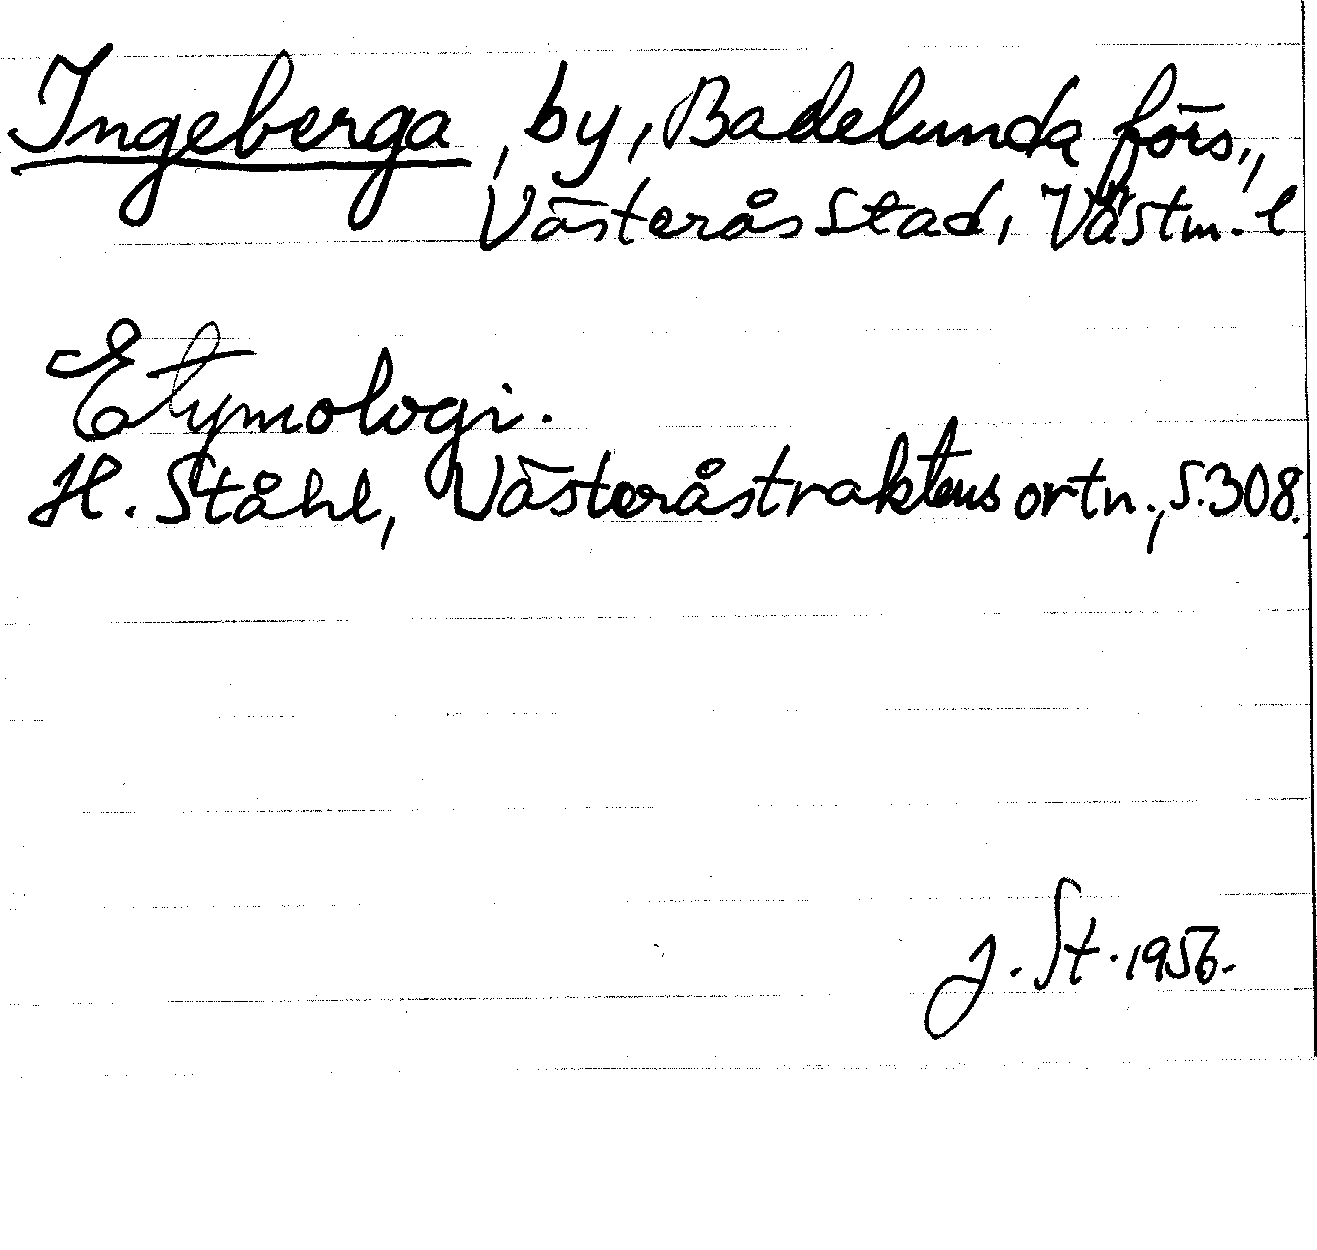 Ingeberga, by, Badelunda förs.,
Västerås Stad, Västm. l
Etymologi.
H. Ståhl, Västeråstraktens ortn., s. 308.
J. St. 1956.